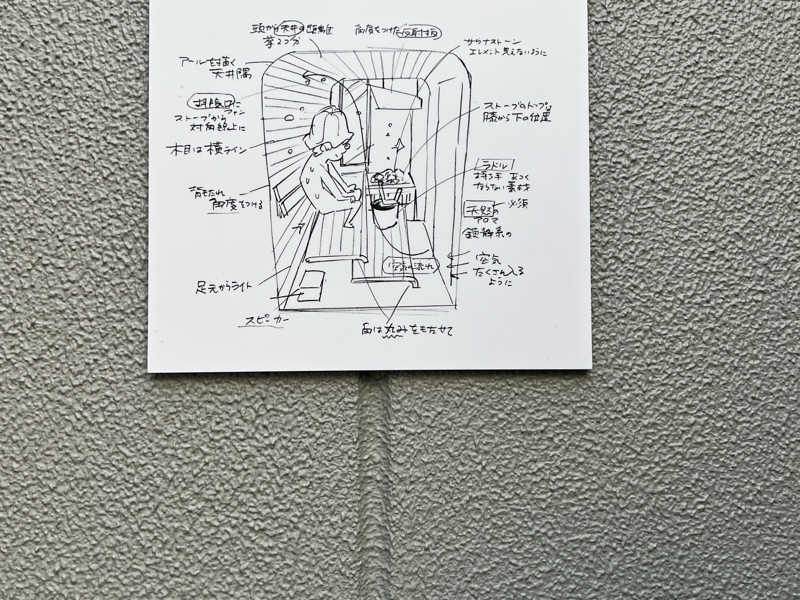 頭から天井の距離は
拳2つ分
角度をつけた反射板
サウナストーン
エレメント見えないように
アールを描く
天井隅
排気口に
ファン
ストーブから
対角線上に
木目は横ライン
背もたれ
角度をつける
足元からライト
スピーカー
ストーブのトップは
膝から下の位置
ラドル
持ち手 あつく
ならない素材
必須
天然の
アロマ
鎮静系の
空気の流れ
空気
たくさん入る
ように
角は丸みをもたせて